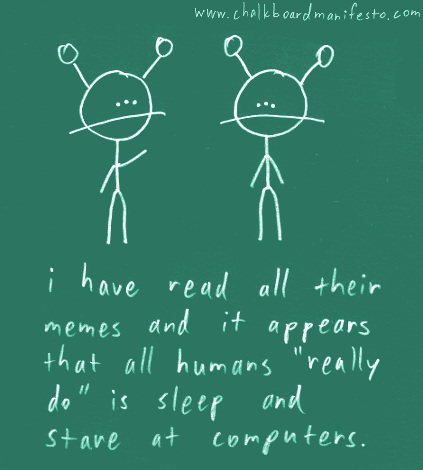 www.chalkboardmanifesto.com
i have read all their
memes and it appears
that all humans "really
do" is sleep and
stare at computers.